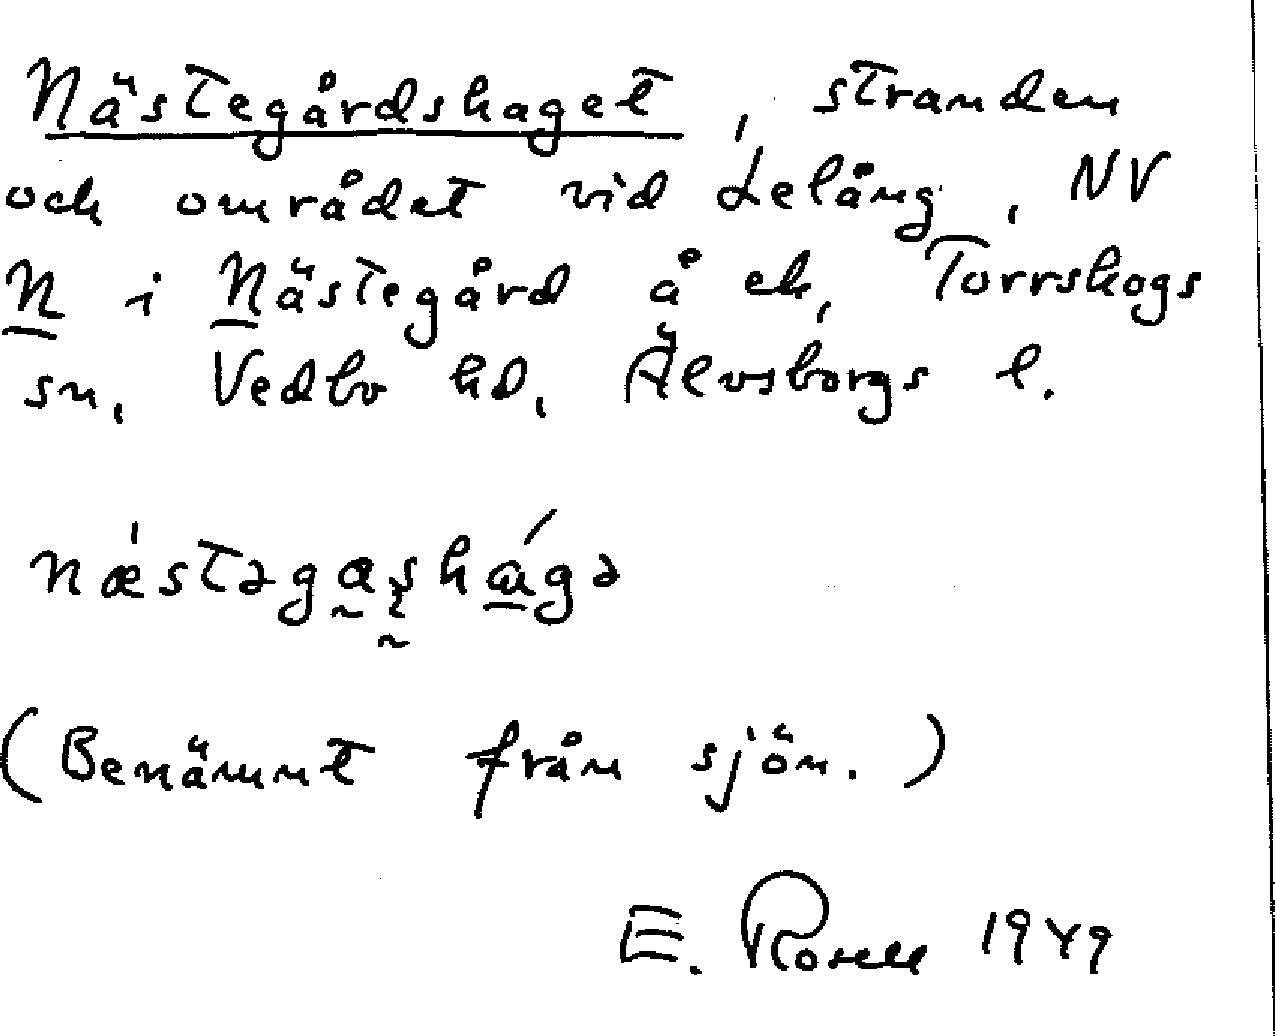 Nästegårdshaget, stranden
och området vid Lelång, NV
N i Nästegård å ek, Torrskogs
sn, Vedbo hd, Älvsborgs l.
næ̍stəga̰ʂhágə
(Benämnt från sjön.)
E. Rosell 1949